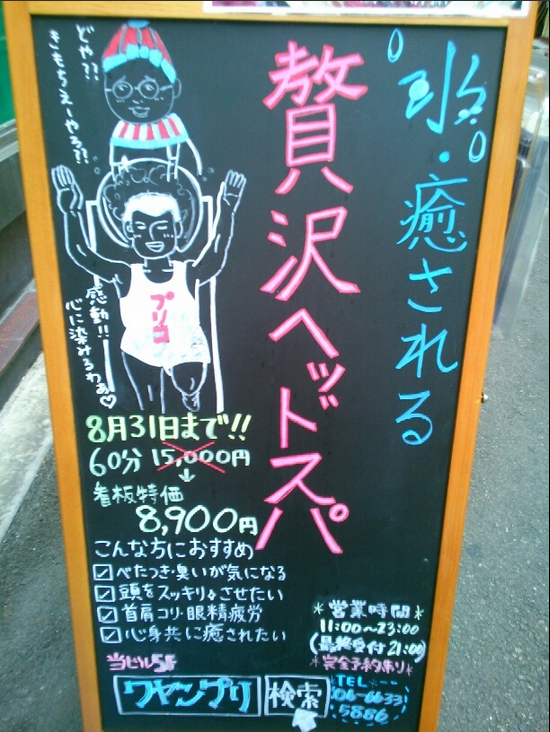 水・癒される
贅沢ヘッドスパ
どや??
きもちえーやろ??
プリコ
感動!!
心に染みるわぁ♡
8月31日まで!!
60分 15,000円
↓
看板特価
8,900円
こんな方におすすめ
☑べたつき・臭いが気になる
☑頭をスッキリさせたい
☑首肩コリ・眼精疲労
☑心身共に癒されたい
当ビル5F
ワヤンプリ 検索
＊営業時間＊
11:00〜23:00
(最終受付21:00)
＊完全予約制＊
TEL
06-6633
5886